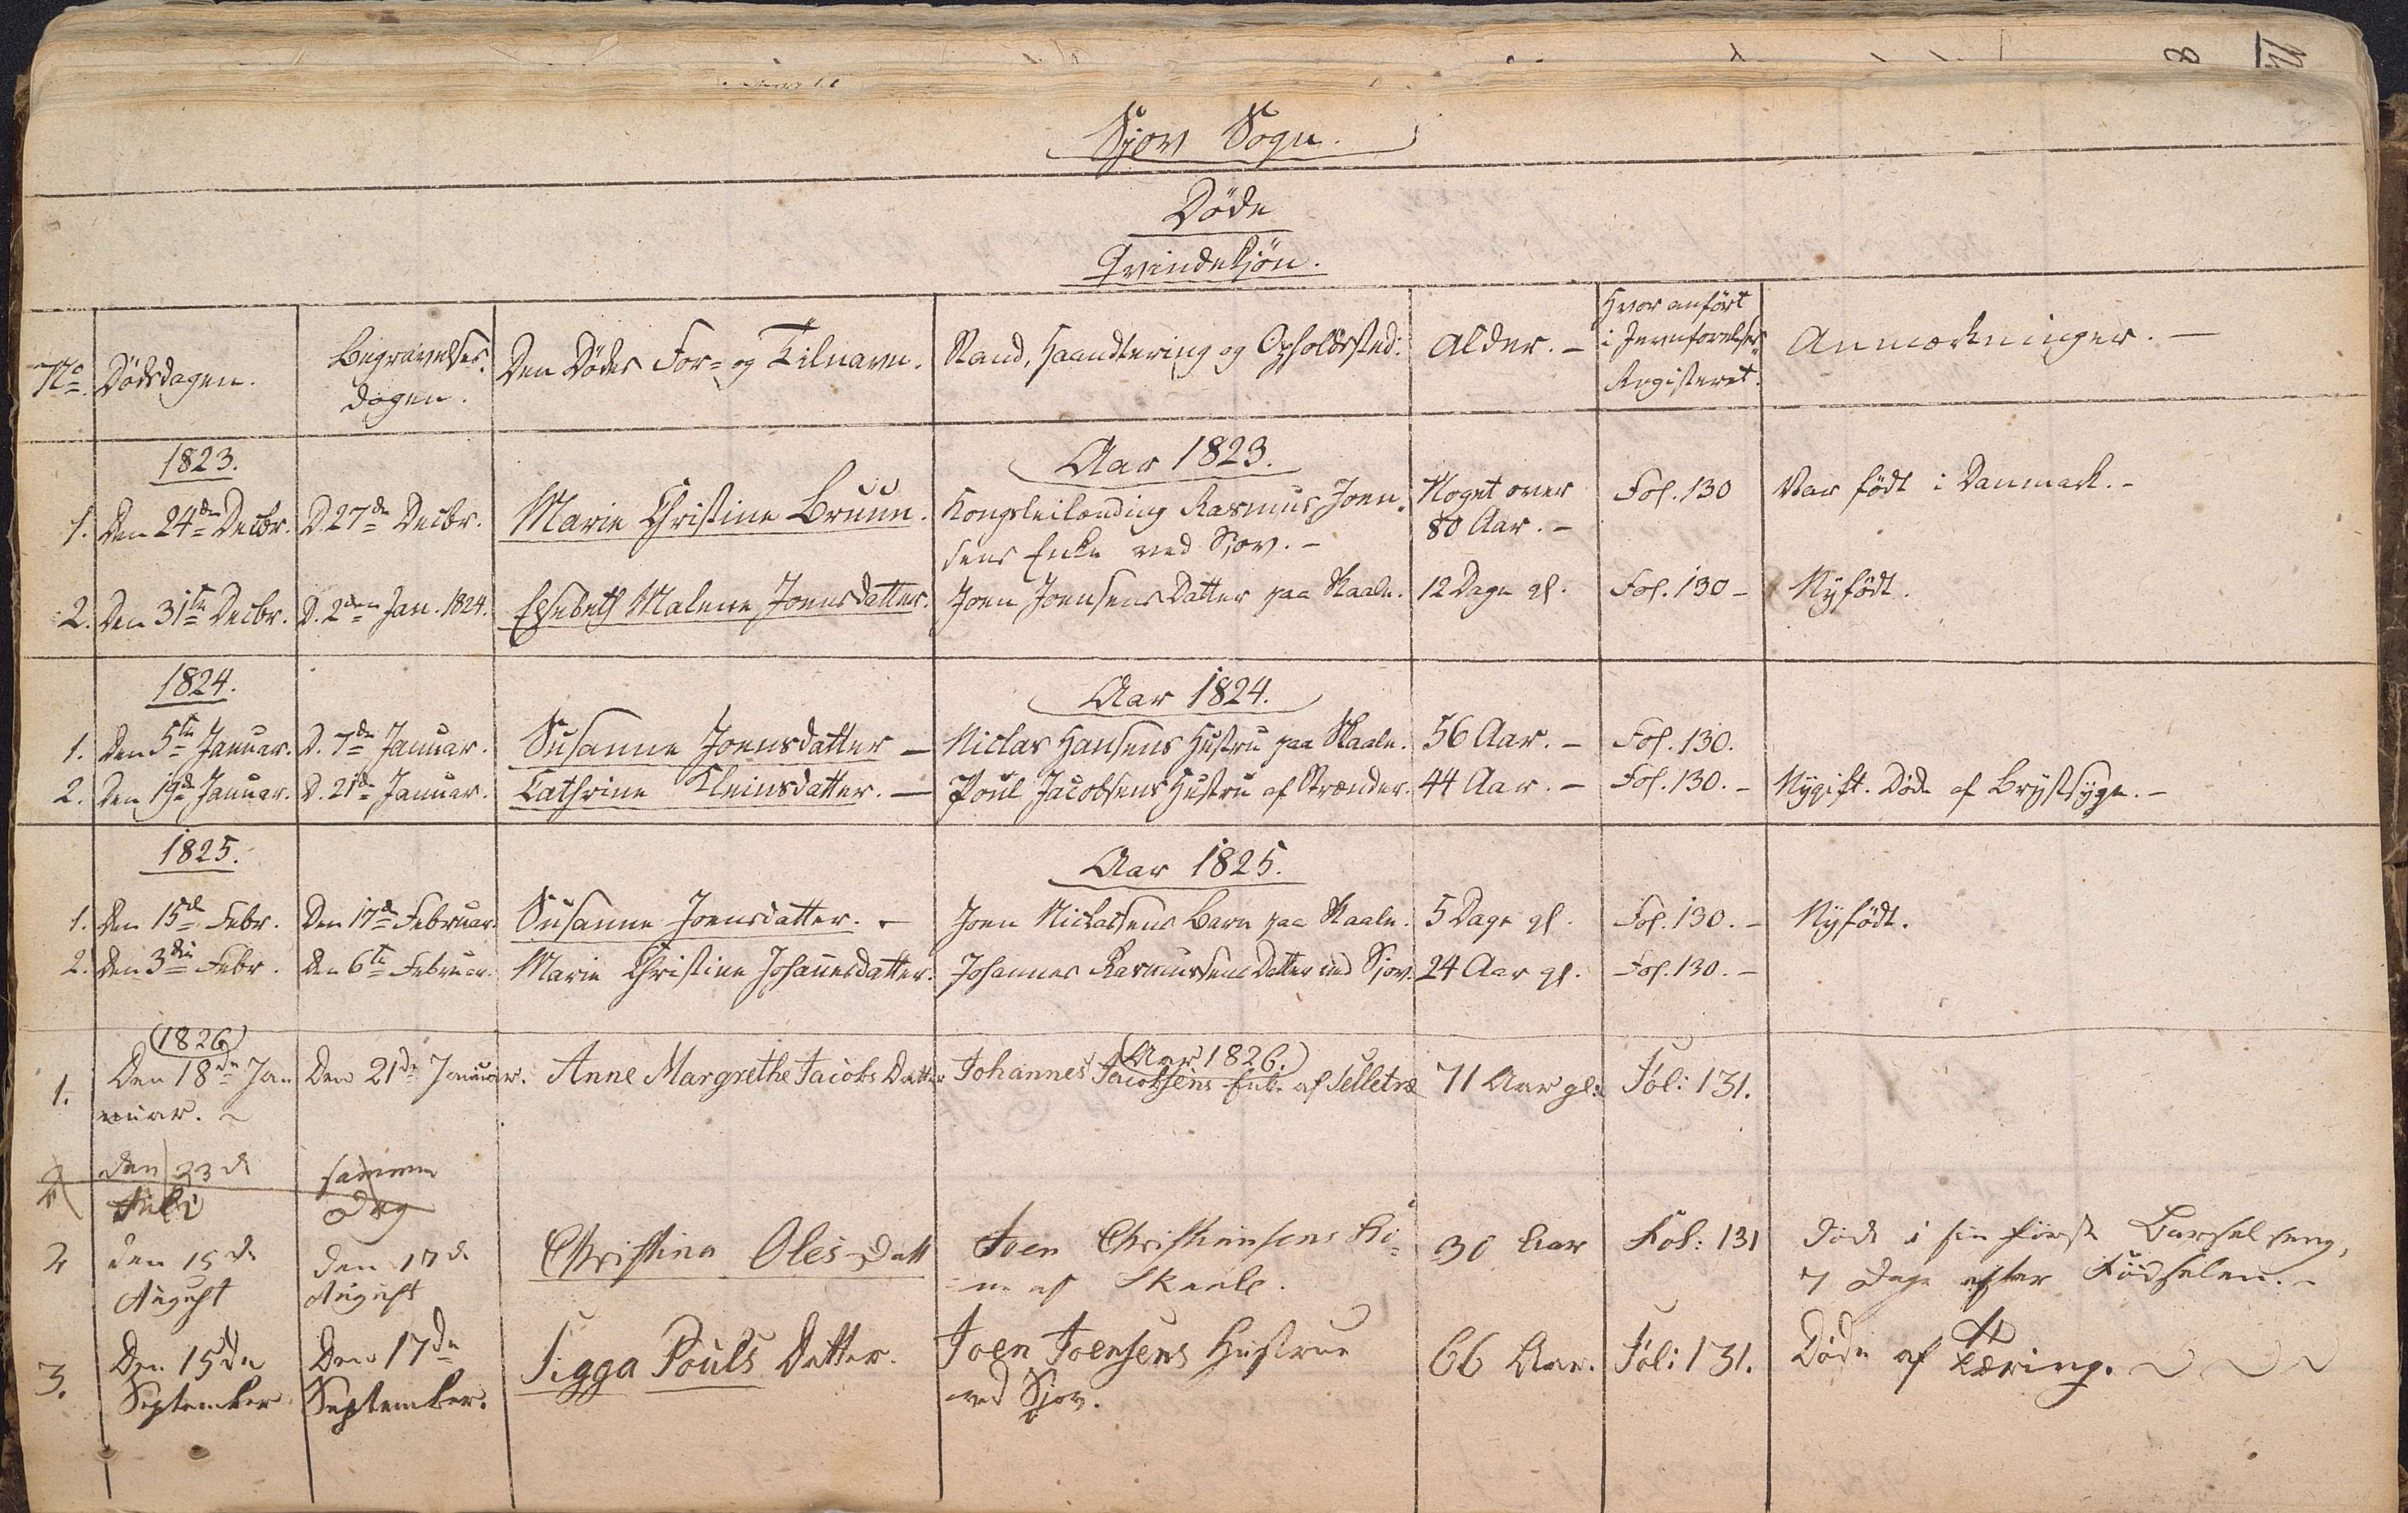 Sjov Sogn.
Døde
Qvindekjön.
No Dødsdagen. Begravelses- dagen. Den Dødes For- og Tilnavn. Stand, Haandtering og Opholdssted. Alder. Hvor anført i Jevnførelses- Registeret. Anmærkninger.
1823. Aar 1823.
1. Den 24de Decbr. D. 27de Decbr. Marie Christine Bruun. Kongsleilænding Rasmus Joen- Noget over Fol. 130 Var født i Danmark.
sens Enke ved Sjov. 80 Aar.
2. Den 31te Decbr. D. 2den Jan. 1824. Elsebeth Malene Joensdatter. Joen Joensens Datter paa Skaale. 12 Dage gl. Fol. 130 Nyfödt.
1824. Aar 1824.
1. Den 5te Januar. D. 7de Januar. Susanne Joensdatter Niclas Hansens Hustru paa Skaale. 56 Aar. Fol. 130.
2. Den 19de Januar. D. 21de Januar. Cathrine Kleinsdatter. Poul Jacobsens Hustru af Strænder. 44 Aar. Fol. 130. Nygift. Døde af Brystsyge.
1825. Aar 1825.
1. Den 15de Febr. Den 17de Februar. Susanne Joensdatter. Joen Niclassens Barn paa Skaale. 5 Dage gl. Fol. 130. Nyfödt.
2. Den 3die Febr. Den 6te Februar. Marie Christine Johannesdatter. Johannes Rasmussens Datter ved Sjov. 24 Aar gl. Fol. 130.
1826 Aar 1826.
1. Den 18de Jan Den 21de Januar. Anne Margrethe Jacobs Datter Johannes Jacobsens Enke af Selletræ 71 Aar gl: Fol: 131.
nuar.
2 den 23de samme
Juli Dag
2 den 15de den 17de Christina Oles Datt Joen Christiansens Ko- 30 Aar Fol: 131 Døde i sin første Barselseng,
August August ne af Skaale. 7 Dage efter Födselen.
3. Den 15de Den 17de Sigga Pouls Datter. Joen Joensens Hustrue 66 Aar. Fol: 131. Døde af Tæring.
September September. ved Sjov.